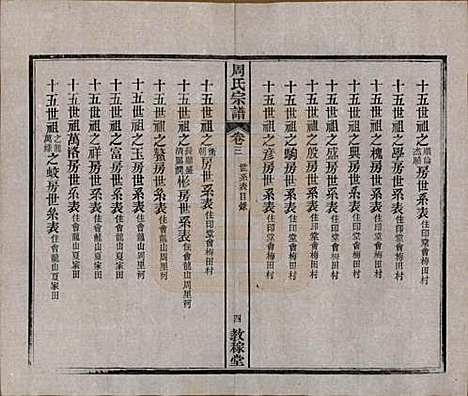 十五世祖之順論杰願房世系表住印堂會梅田村
十五世祖之學房世系表住印堂會梅田村
十五世祖之槐房世系表住印堂會梅田村
十五世祖之盛房世系表住印堂會梅田村
十五世祖之興房世系表住印堂會梅田村
十五世祖之殷房世系表住印堂會梅田村
十五世祖之駒房世系表住印堂會梅田村
十五世祖之彥房世系表住印堂會梅田村
房世系表住印堂會梅田村
周氏宗譜
卷三
世系表目錄
四
教稼堂
彬房世系表住會龍山周里河
十五世祖之鰲房世系表住會龍山周里河
十五世祖之玉房世系表住會龍山周里河
十五世祖之富房世系表住會龍山夏家田
十五世祖之祥房世系表住會龍山夏家田
十五世祖萬榙房世系表住會龍山夏家田
十五世祖之龍萬綠之蛟房世系表住會龍山夏家田